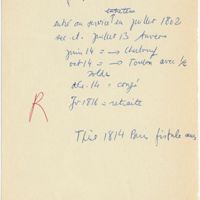 entré au service en juillet 1802
sec. et. juillet 13 Anvers
juin 14 = → Cherbourg
oct 14 = → Toulon avec ½
solde
déc. 14 = congé
fr 1816 = retraite
R
Thèse 1814 Paris fistule